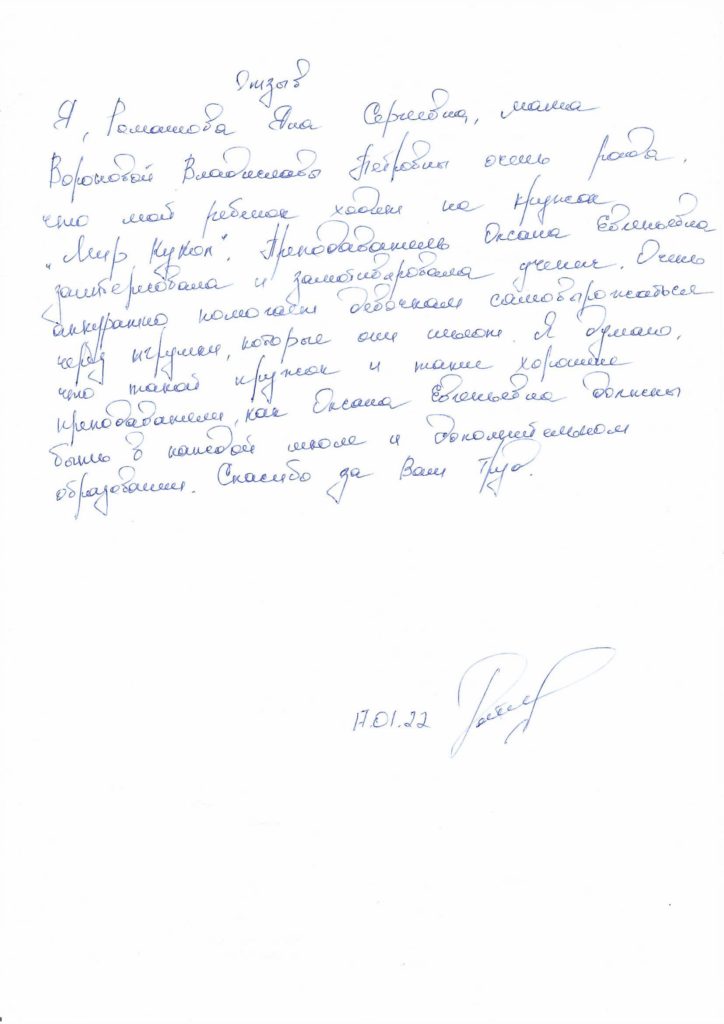 Отзыв
Я, Романова Яна Сергеевна, мама
Вороновой Владиславы Петровны очень рада,
что мой ребенок ходит на кружок
"Мир кукол". Преподаватель Оксана Евгеньевна
заинтересовала и замотивировала учениц. Очень
аккуратно помогает девочкам самовыражаться
через игрушки, которые они шьют. Я думаю,
что такой кружок и такие хорошие
преподаватели, как Оксана Евгеньевна должны
быть в каждой школе и дополнительном
образовании. Спасибо за Ваш труд.
17.01.22